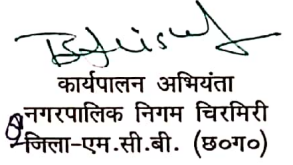 कार्यपालन अभियंता
नगरपालिक निगम चिरमिरी
जिला-एम.सी.बी. (छ०ग०)